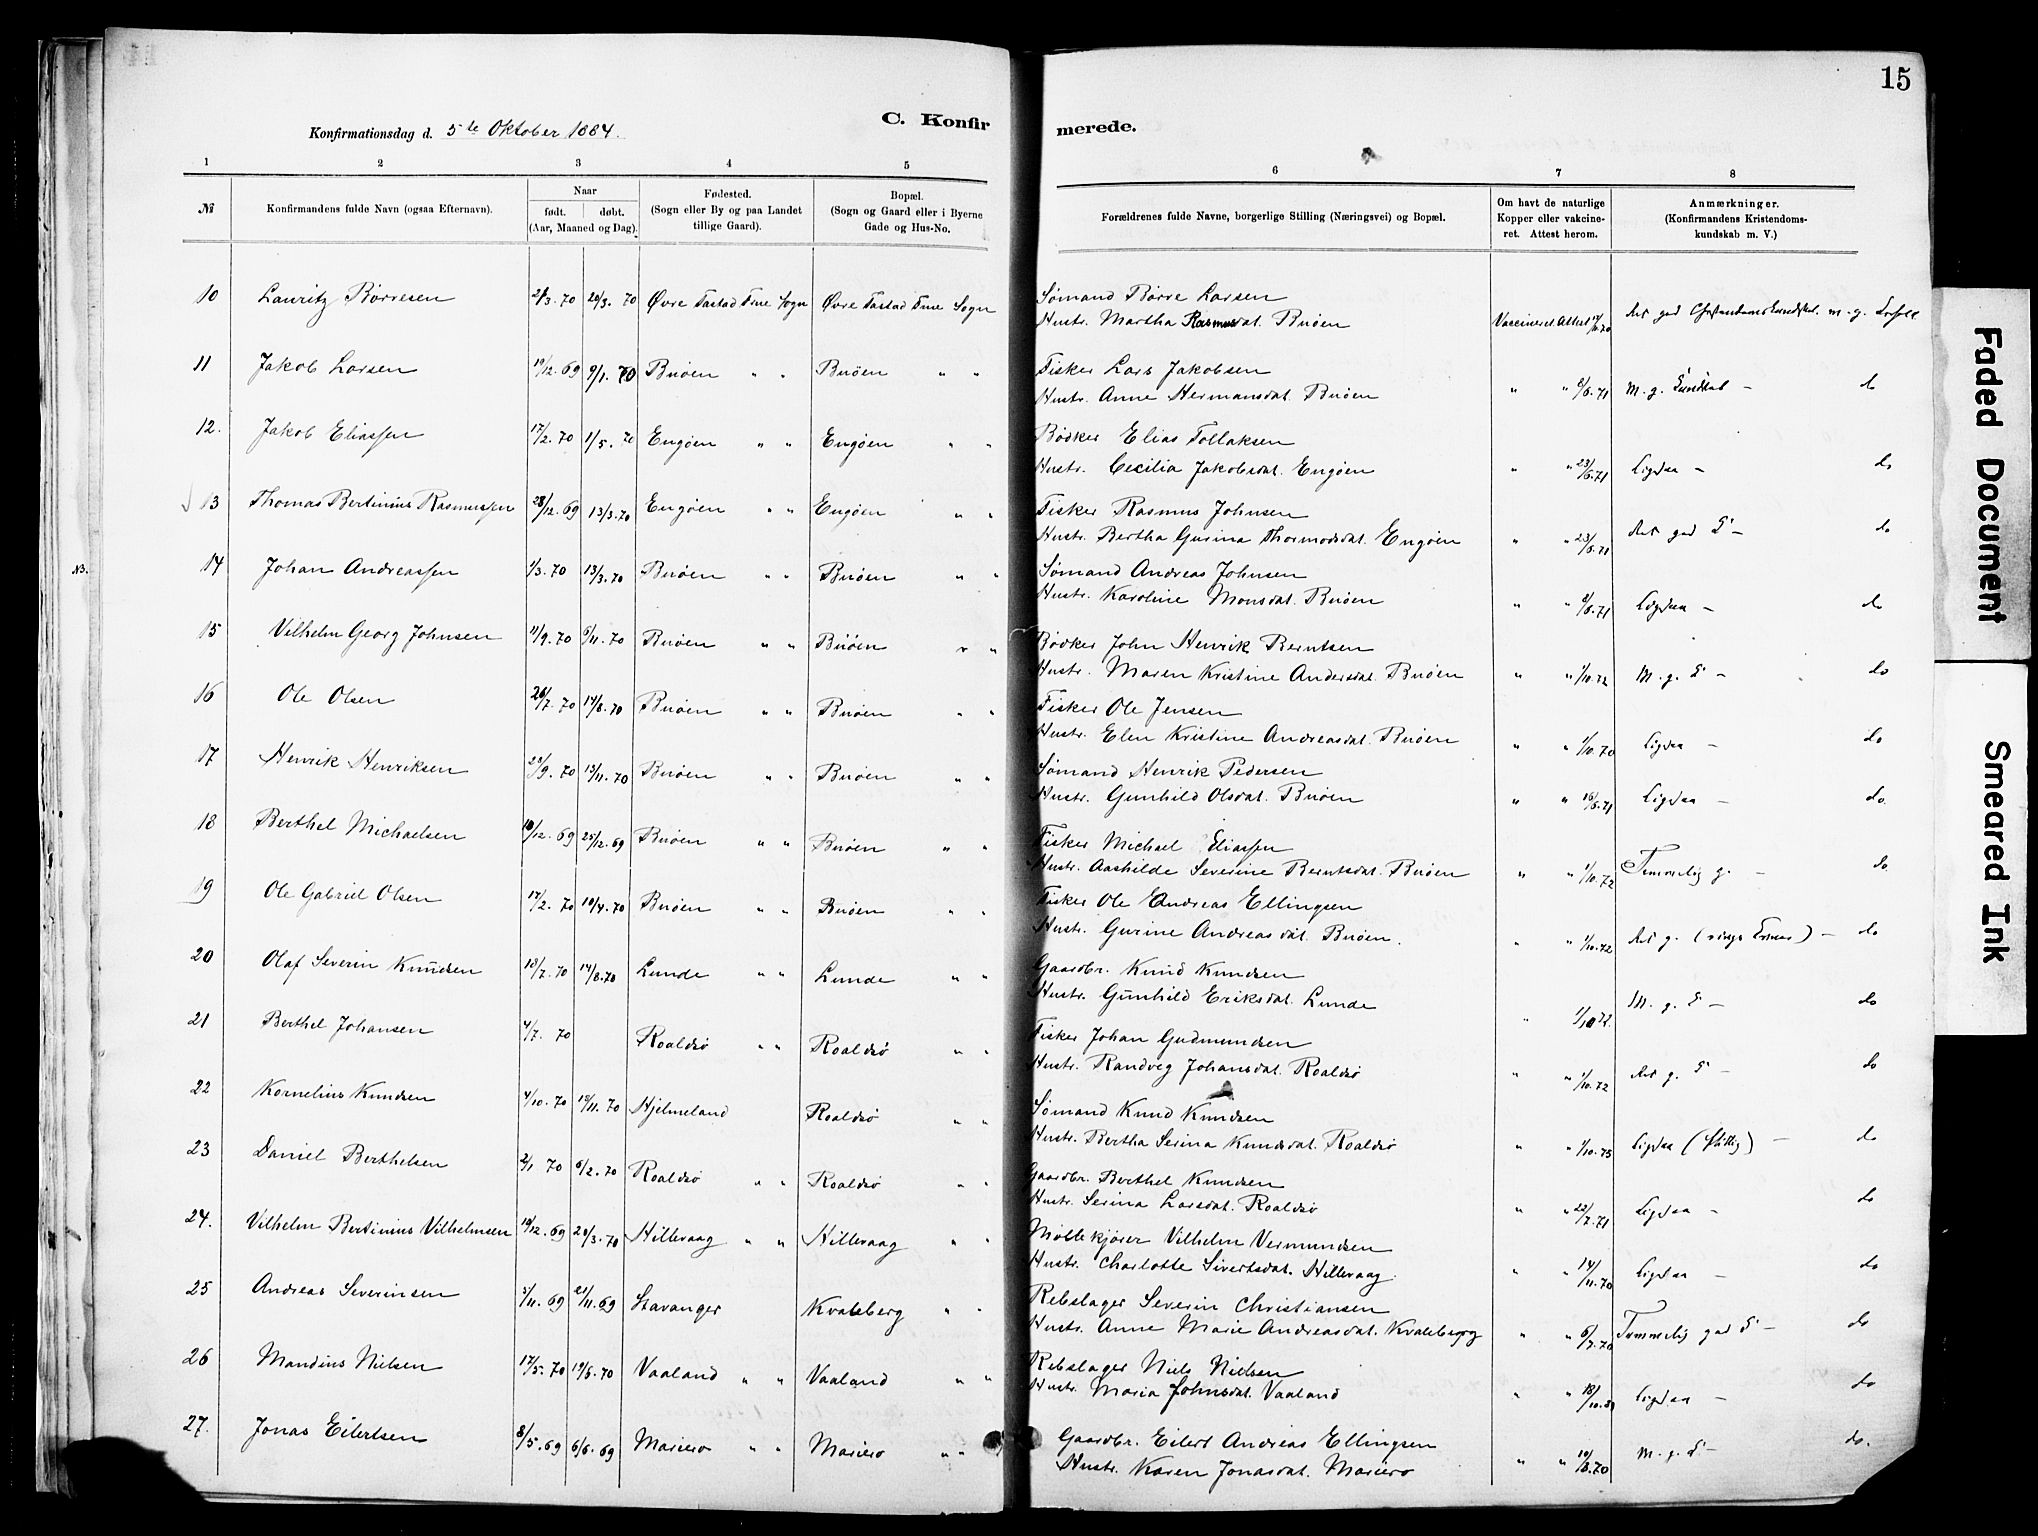 15
Konfirmationsdag d. 5te Oktober 1884.
C. Konfirmerede.
1 2 3 4 5 6 7 8
№
Konfirmandens fulde Navn (ogsaa Efternavn).
Naar
født. døbt.
(Aar, Maaned og Dag).
Fødested.
(Sogn eller By og paa Landet
tillige Gaard).
Bopæl.
(Sogn og Gaard eller i Byerne
Gade og Hus-No.
Forældrenes fulde Navne, borgerlige Stilling (Næringsvei) og Bopæl.
Om havt de naturlige
Kopper eller vakcine-
ret. Attest herom.
Anmærkninger.
(Konfirmandens Kristendoms-
kundskab m. V.)
10 Lauritz Børresen 2/3. 70 20/3. 70 Øvre Tastad Frue Sogn Øvre Tastad Frue Sogn Sømand Børre Larsen
Hustr. Martha Rasmusdat. Buøen Vaccineret Attest
11 Jakob Larsen 19/12. 69 9/1. 70 Buøen " " Buøen " " Fisker Lars Jakobsen
Hustr. Anne Hermansdat. Buøen " " 8/6.71 M. g. Kundskab - do
12. Jakob Eliassen 17/2. 70 1/5. 70 Engøen " " Engøen " " Bødker Elias Tollaksen
Hustr. Cecilia Jakobsdat. Engøen " " 23/6.71 Ligesaa - do
13 Thomas Bertinius Rasmussen 28/12. 69 13/3.70 Engøen " " Engøen " " Fisker Rasmus Johnsen
Hustr. Bertha Gurina Thormodsdat. Engøen " " 23/6.71 do
NB. 14 Johan Andreassen 1/3. 70 13/3. 70 Buøen " " Buøen " " Sømand Andreas Johnsen
Hustr. Karoline Monsdat. Buøen " " 8/6.71 Ligesaa - do
15 Vilhelm Georg Johnsen 11/9. 70 6/11. 70 Buøen " " Buøen " " Bødker John Henrik Berntsen
Hustr. Maren Kristine Andersdat. Buøen " " 1/10.72 M. g. K - do
16 Ole Olsen 26/7. 70 14/8. 70 Buøen " " Buøen " " Fisker Ole Jensen
Hustr. Elen Kristine Andreasdat. Buøen " " 1/10.70 Ligesaa - do
17 Henrik Henriksen 23/9. 70 13/11. 70 Buøen " " Buøen " " Sømand Henrik Pedersen
Hustr. Gunhild Olsdat. Buøen " " 16/6.71 Ligesaa - do.
18 Berthel Michaelsen 10/12. 69 25/12. 69 Buøen " " Buøen " " Fisker Michael Eliassen
Hustr. Aashilde Severine Berntsdat. Buøen " " 1/10.72 Temmelig g. - do.
19 Ole Gabriel Olsen 17/2. 70 10/4. 70 Buøen " " Buøen " " Fisker Ole Andreas Ellingsen
Hustr. Gurine Andreasdat. Buøen. " " 1/10.72 do
20 Olaf Severin Knudsen 13/7. 70 14/8. 70 Lunde " " Lunde " " Gaardbr. Knud Knudsen
Hustr. Gunhild Eriksdat. Lunde " 1/10 72. M. g. K - do
21 Berthel Johansen 4/7. 70 Roaldsø " " Roaldsø " " Fisker Johan Gudmundsen
Hustr. Randveg Johansdat. Roaldsø " " 1/10.72 do
22 Kornelius Knudsen 4/10. 70 13/11. 70 Hjelmeland Roaldsø " " Sømand Knud Knudsen
Hustr. Bertha Serina Knudsdat. Roaldsø " " 1/10.75 Ligesaa (flittig) - do
23 Daniel Berthelsen 2/1 70 6/2. 70 Roaldsø " " Roaldsø " " Gaardbr. Berthel Knudsen
Hustr. Serina Larsdat. Roaldsø " " 22/7.71 Ligesaa - do
24. Vilhelm Bertinius Vilhelmsen 19/12. 69 20/3. 70 Hillevaag " " Hillevaag " " Møllekjører Vilhelm Vermundsen
Hustr. Charlotte Sivertsdat. Hillevaag. " " 14/11.70 Ligesaa - do
25 Andreas Severinsen 3/11. 69 21/11. 69 Stavanger Kvaleberg " " Rebslager Severin Christiansen
Hustr. Anne Marie Andreasdat. Kvaleberg " " 6/7.70 Temmelig god K - do
26 Mandius Nielsen 17/5. 70 19/6. 70 Vaaland " " Vaaland " " Rebslager Niels Nielsen
Hustr. Maria Johnsdat. Vaaland " " Ligesaa - do
27. Jonas Eilertsen 8/5. 69 6/6. 69 Mariero " " Mariero " " Gaardbr. Eilert Andreas Ellingsen
Hustr. Karen Jonasdat. Mariero " " 10/8.70 M. g. K - do.
Faded Document
Smeared Ink